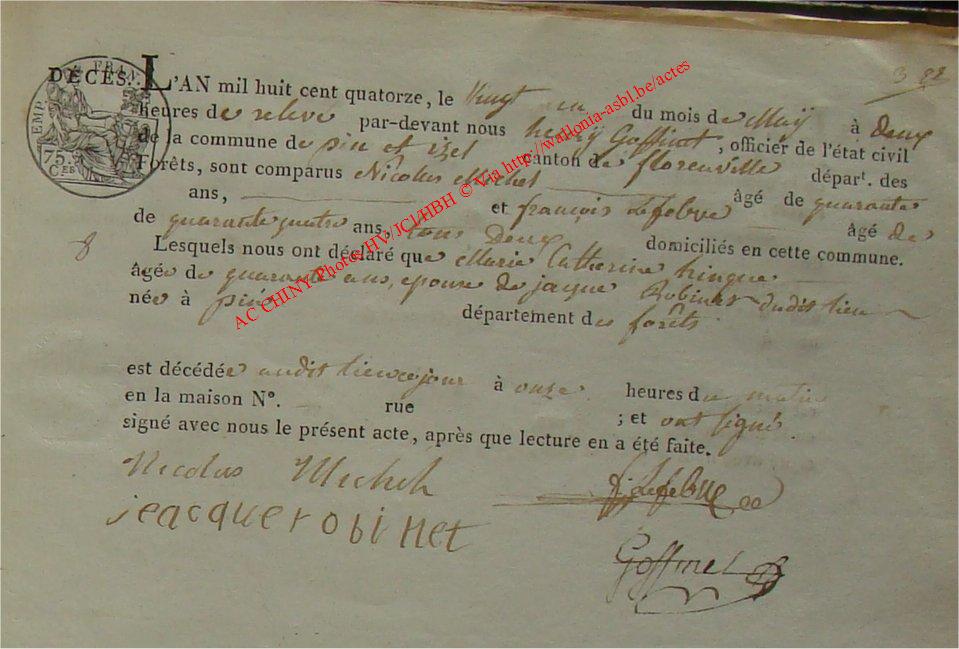 3 92
DÉCÈS.
EMP. FRAN.
75.
Ces
L'AN mil huit cent quatorze, le Vingt un du mois de Maÿ à deux
heures de relevé par-devant nous henrÿ Goffinet, officier de l'état civil
de la commune de pin et izel canton de florenville départ. des
Forêts, sont comparus Nicolas Michel âgé de quarante
ans, et françois Lefebve âgé de
de quarante quatre ans, tous Deux domiciliés en cette commune.
8
Lesquels nous ont déclaré que Marie Catherine
âgée de quarante ans, epouse de jacque Robinet dudit lieu
née à pin département des forêts
est décédée audit lieu ce jour à onze heures du matin
en la maison N°. rue ; et ont signé
signé avec nous le présent acte, après que lecture en a été faite.
Nicolas Michel
f. Lefebve
jeacque robinet
Goffinet
AC CHINY Photos/HV/JCL/HBH © Via http://wallonia-asbl.be/actes